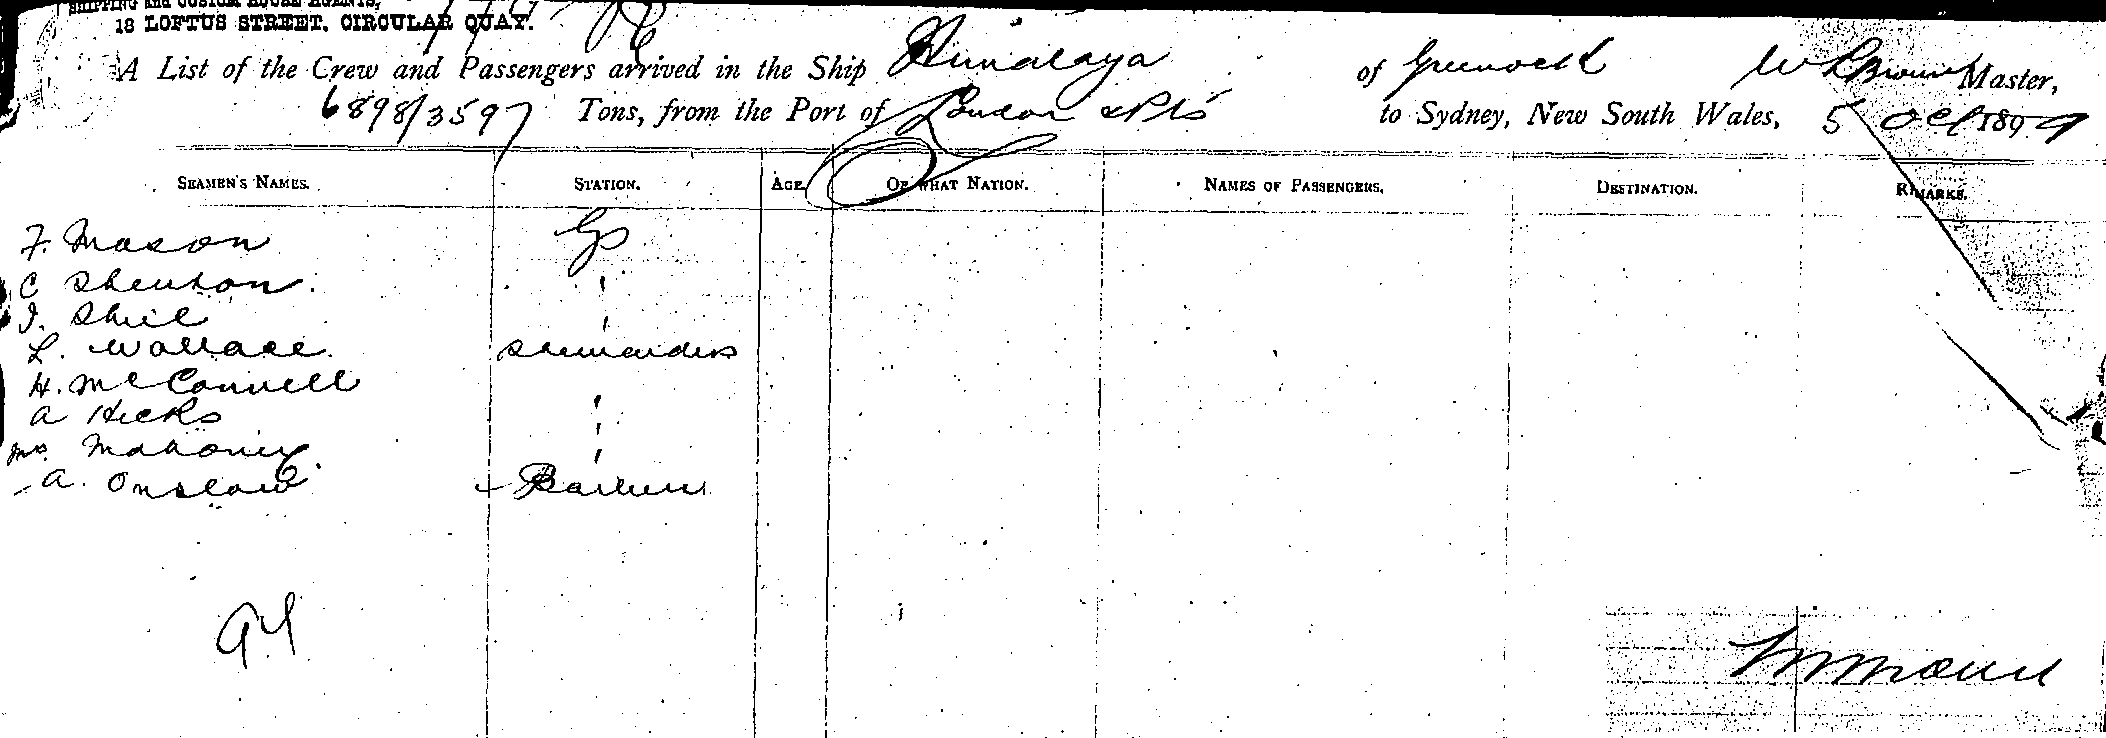 SHIPPING AND CUSTOM HOUSE AGENTS,
18 LOFTUS STREET, CIRCULAR QUAY.
A List of the Crew and Passengers arrived in the Ship Himalaya of Greenock W L Broun Master,
6898/3597 Tons, from the Port of London & Pts to Sydney, New South Wales, 5 Oct 1897
SEAMEN'S NAMES. STATION. AGE. OF WHAT NATION. NAMES OF PASSENGERS. DESTINATION. REMARKS.
F. Mason GS
C Shenton. '
J. Shiel '
L. Wallace. Stewardess
H. McConnell '
A Hicks '
Mrs. Mahoney. '
A. Onslow Barber
91